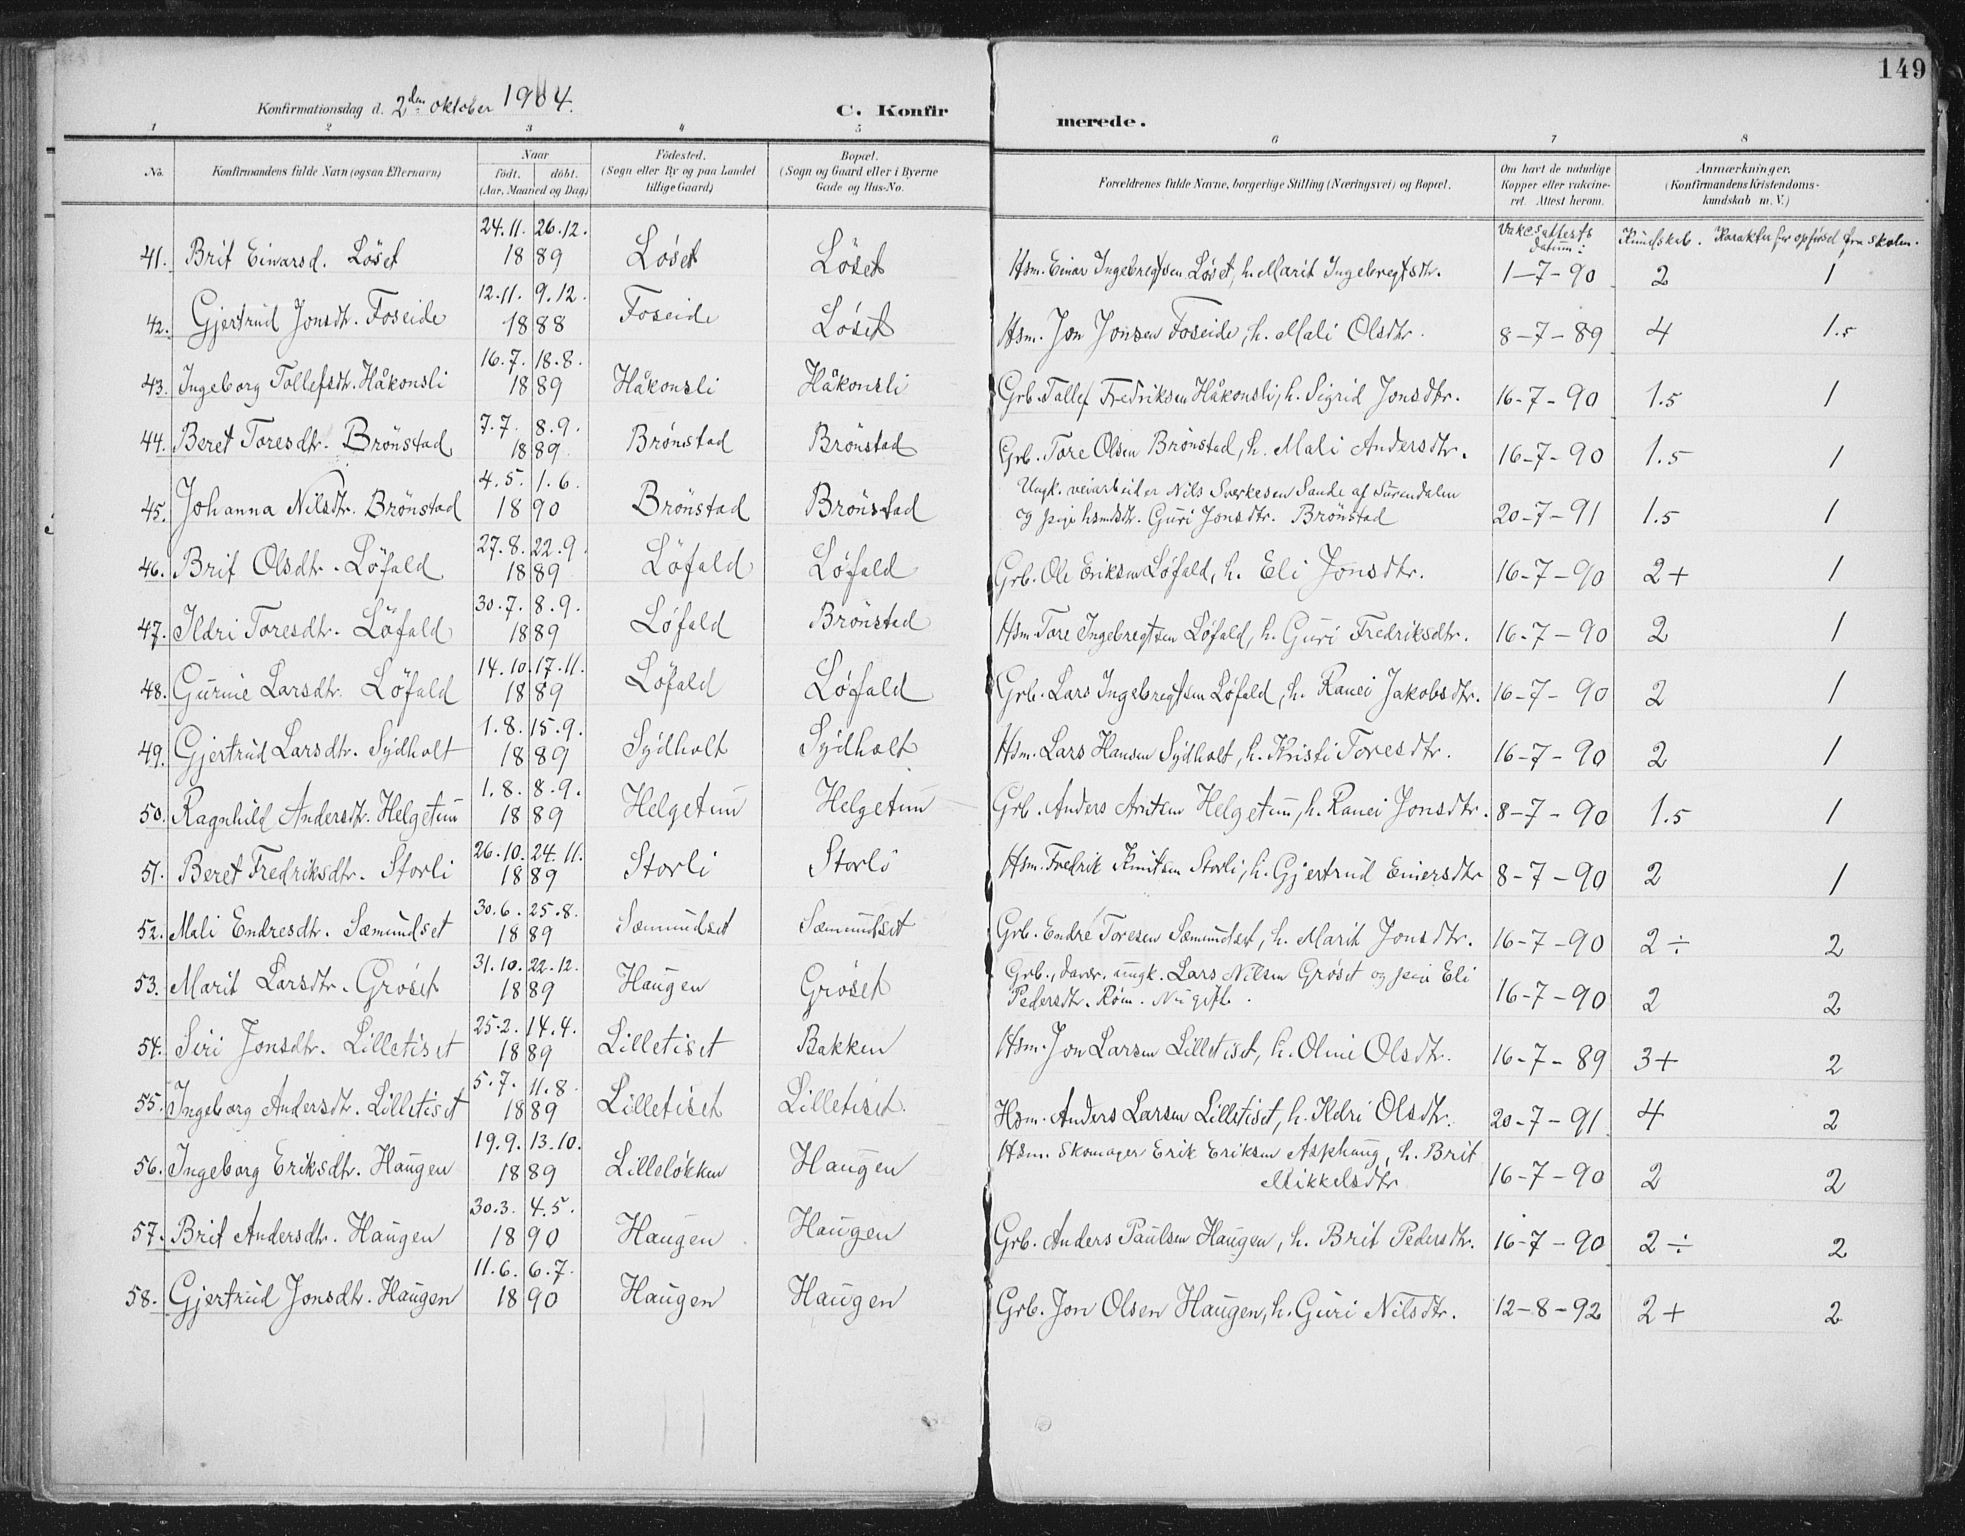 149
Konfirmationsdag d. 2den oktober 1904.
C. Konfirmerede.
1 2 3 4 5 6 7 8
No. Konfirmandens fulde Navn (ogsaa Efternavn) Naar født. døbt. (Aar, Maaned og Dag) Fødested. (Sogn eller By og paa Landet tillige Gaard) Bopæl. (Sogn og Gaard eller i Byerne Gade og Hus-No. Forældrenes fulde Navne, borgerlige Stilling (Næringsvei) og Bopæl. Om havt de naturlige Kopper eller vaccineret. Attest herom. Anmærkninger. (Konfirmandens Kristendomskundskab m. V.)
Vakcsattests datum: Kundskab. Karakter for opførsel fra skolen.
41. Brit Einarsd. Löset 24.11. 26.12. 1889 Løset Löset Hsm. Einar Ingebregtsen Løset, h. Marit Ingebregtsdtr. 1-7-90 2 1
42. Gjertrud Jonsdtr. Foseide 12.11. 9.12. 1888 Foseide Løset Hsm. Jon Jonsen Foseide, h. Mali Olsdtr. 8-7-89 4 1.5
43. Ingeborg Tollefsdtr. Håkonsli 16.7. 18.8. 1889 Håkonsli Håkonsli Grb. Tollef Fredriksen Håkonsli, h. Sigrid Jonsdtr. 16-7-90 1.5 1
44. Beret Toresdtr. Brönstad 7.7. 8.9. 1889 Brönstad Brönstad Grb. Tore Olsen Brönstad, h. Mali Andersdtr. 16-7-90 1.5 1
45. Johanna Nilsdtr. Brönstad 4.5. 1.6. 1890 Brönstad Brönstad Ungk. veiarbeider Nils Sverkesen Sande af Surendalen
og pige hsmdsdtr. Guri Jonsdtr. Brönstad 20-7-91 1.5 1
46. Brit Olsdtr. Löfald 27.8. 22.9. 1889 Löfald Løfald Grb. Ole Eriksen Løfald, h. Eli Jonsdtr. 16-7-90 2+ 1
47. Ildri Toresdtr. Löfald 30.7. 8.9. 1889 Løfald Brönstad Hsm. Tore Ingebregtsen Løfald, h. Guri Fredriksdtr. 16-7-90 2 1
48. Gurine Larsdtr. Löfald 14.10. 17.11. 1889 Löfald Løfald Grb. Lars Ingebregtsen Løfald, h. Ranei Jakobsdtr. 16-7-90 2 1
49. Gjertrud Larsdtr. Sydhalt 1.8. 15.9. 1889 Sydhalt Sydhalt Hsm. Lars Hansen Sydhalt, h. Kristi Toresdtr. 16-7-90 2 1
50. Ragnhild Andersdtr. Helgetun 1.8. 8.9. 1889 Helgetun Helgetun Grb. Anders Arntsen Helgetun, h. Ranei Jonsdtr. 8-7-90 1.5 1
51. Beret Fredriksdtr. Storli 26.10. 24.11. 1889 Storli Storli Hsm. Fredrik Knutsen Storli, h. Gjertrud Einersdtr 8-7-90 2 1
52. Mali Endresdtr. Sæmundset 30.6. 25.8. 1889 Sæmundset Sæmundset Grb. Endre Toresen Sæmundset, h. Marit Jonsdtr. 16-7-90 2÷ 2
53. Marit Larsdtr. Grøset 31.10. 22.12. 1889 Haugen Grøset Grb., davær. ungk. Lars Nilsen Grøset og pige Eli
Pedersdtr. Røm. Nu gifte. 16-7-90 2 2
54. Siri Jonsdtr. Lilletiset 25.2. 14.4. 1889 Lilletiset Bakken Hsm. Jon Larsen Lilletiset, h. Oline Olsdtr. 16-7-89 3+ 2
55. Ingeborg Andersdtr. Lilletiset 5.7. 11.8. 1889 Lilletiset Lilletiset. Hsm. Anders Larsen Lilletiset, h. Ildri Olsdtr. 20-7-91 4 2
56. Ingeborg Eriksdtr. Haugen 19.9. 13.10. 1889 Lilleløkken Haugen Hsm. Skomager Erik Eriksen Asphaug, h. Brit
Mikkelsdtr 16-7-90 2 2
57. Brit Andersdtr. Haugen 30.3. 4.5. 1890 Haugen Haugen Grb. Anders Paulsen Haugen, h. Brit Pedersdtr. 16-7-90 2÷ 2
58. Gjertrud Jonsdtr. Haugen 11.6. 6.7. 1890 Haugen Haugen Grb. Jon Olsen Haugen, h. Guri Nilsdtr. 12-8-92 2+ 2